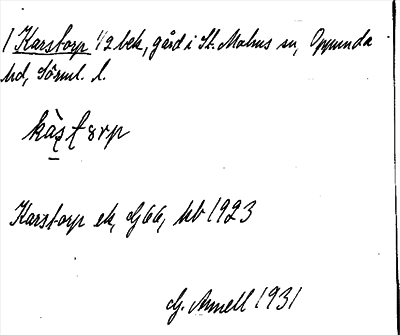 1 Karstorp 1/2 bek, gård i St. Malms sn, Oppunda
hd, Sörml. l.
kàʂtɔrp
Karstorp ek, dj 66, kb 1923
G. Annell 1931